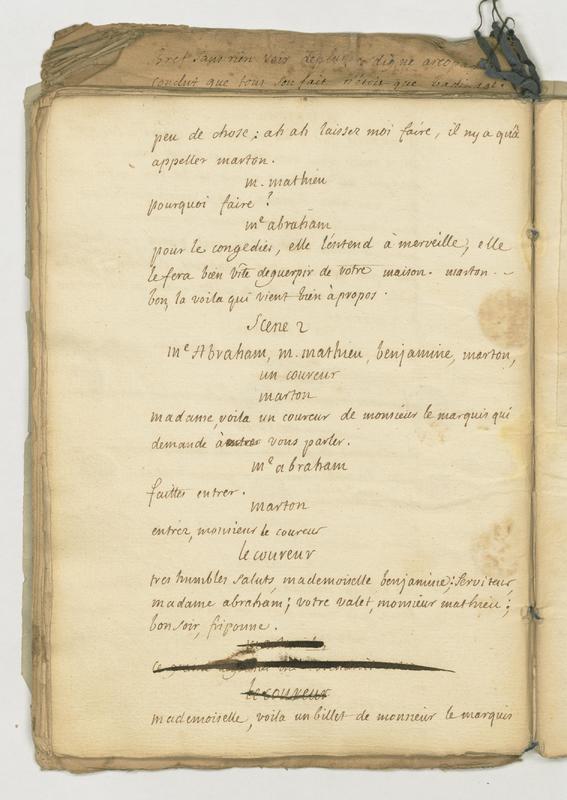 Bref sans rien voir digne
conclut que tous son fait n'etoit que badinage.
peu de chose; ah ah laissez moi faire, il ny a qu'à
appeller marton.
m. mathieu
pourquoi faire?
me abraham
pour le congedier, elle l'entend à merveille, elle
le fera bien vîte deguerpir de votre maison. marton. -
bon, la voila qui vient bien à propos.
Scene 2
me Abraham, m. mathieu, benjamine, marton,
un coureur
marton
madame, voila un coureur de monsieur le marquis qui
demande à vous parler.
me abraham
faittes entrer.
marton
entrez, monsieur le coureur
le coureur
tres humbles saluts mademoiselle benjamine; serviteur,
madame abraham; votre valet, monsieur mathieu;
bon soir, friponne.
le coureur
mademoiselle, voila un billet de monsieur le marquis